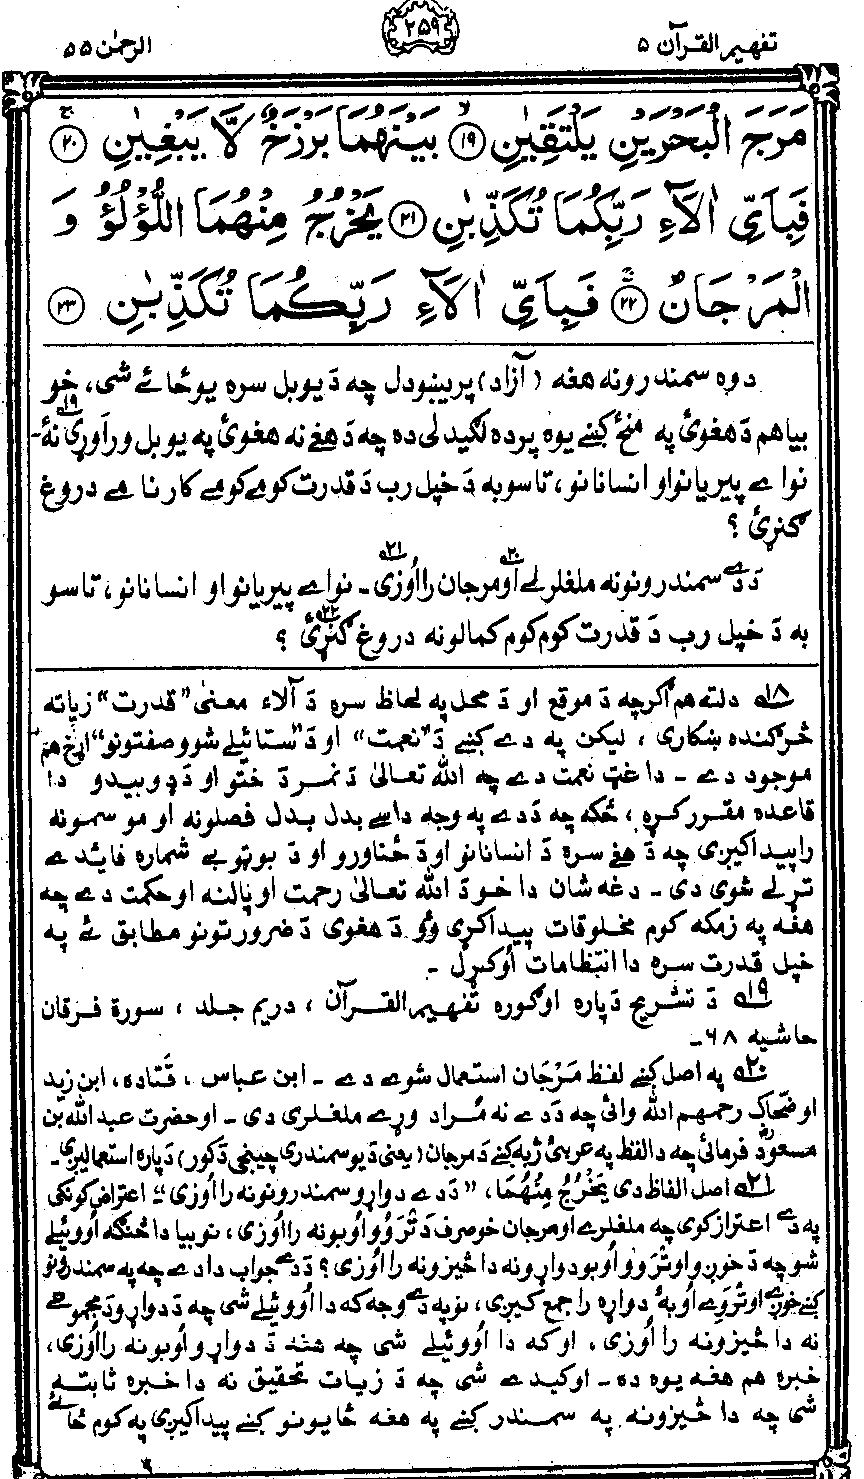 تفهيم القرآن ۵
۲۵۹
الرحمٰن ۵۵
مَرَجَ الْبَحْرَيْنِ يَلْتَقِيٰنِ ۙ۝۱۹ بَيْنَهُمَا بَرْزَخٌ لَّا يَبْغِيٰنِ ۚ۝۲۰
فَبِاَىِّ اٰلَآءِ رَبِّكُمَا تُكَذِّبٰنِ ۝۲۱ يَخْرُجُ مِنْهُمَا اللُّؤْلُؤُ وَ
الْمَرْجَانُ ۚ۝۲۲ فَبِاَىِّ اٰلَآءِ رَبِّكُمَا تُكَذِّبٰنِ ۝۲۳
دوه سمندرونه هغه (آزاد) پرېښودل چه دَ يو بل سره يو ځائے شى، خو
بيا هم دَ هغوئ په منځ کښے يوه پرده لګيدلى ده چه دَ هغے نه هغوئ په يو بل وراَوړى نۀ ۱۹ـ
نو اے پيريانو او انسانانو، تاسو به دَ خپل رب دَ قدرت کومے کومے کارنامے دروغ
ګنړئ ؟
دَ دے سمندرونو نه ملغلرے او ۲۰ مرجان رااُوزى ۲۱ ـ نو اے پيريانو او انسانانو، تاسو
به دَ خپل رب دَ قدرت کوم کوم کمالونه دروغ ګنړئ ۲۲ ؟
۱۸ دلته هم اګرچه دَ موقع او دَ محل په لحاظ سره دَ آلاء معنىٰ "قدرت" زياته
څرګنده ښکارى ، ليکن په دے کښے دَ "نعمت" او دَ "ستائيلے شوو صفتونو" اړخ هم
موجود دے ـ دا غټ نعمت دے چه الله تعالىٰ دَ نمر دَ ختو او دَ ډوبيدو دا
قاعده مقرر کړه ، ځکه چه دَ دے په وجه داسے بدل بدل فصلونه او موسمونه
راپيدا کيږى چه دَ هغے سره دَ انسانانو او دَ ځناورو او دَ بوټو بے شماره فائدے
تړلے شوى دى ـ دغه شان دا خو دَ الله تعالىٰ رحمت او پالنه او حکمت دے چه
هغه په زمکه کوم مخلوقات پيدا کړى وُو دَ هغوى دَ ضرورتونو مطابق ئے په
خپل قدرت سره دا انتظامات اُوکړل ـ
۱۹ دَ تشريح دَپاره اوګوره تفهيم القرآن ، دريم جلد ، سورة فرقان
حاشيه ۶۸ـ
۲۰ په اصل کښے لفظ مَرْجَان استعمال شوے دے ـ ابن عباس ، قَتاده، ابن زيد
او ضحّاک رحمهم الله وائى چه دَ دے نه مُراد وړے ملغلرى دى ـ او حضرت عبدالله بن
مسعودؓ فرمائى چه دا لفظ په عربئ ژبه کښے دَ مرجان (يعنى دَ يو سمندرى چينجى دَ کور) دَپاره استعماليږى ـ
۲۱ اصل الفاظ دى يَخْرُجُ مِنْهُمَا، "دَ دے دواړو سمندرونو نه رااُوزى" ـ اعتراض کونکى
په دے اعتراز کوى چه ملغلرے او مرجان خو صرف دَ تُروُو اوبو نه رااُوزى، نو بيا دا څنګه اُووئيلے
شو چه دَ خوږو او تُروُو اوبو دواړو نه دا څيزونه رااُوزى؟ دَ دے جواب دا دے چه په سمندرونو
کښے خوږے او تُروے اُوبهٔ دواړه را جمع کيږى، نو په دے وجه که دا اُووئيلے شى چه دَ دواړو دَ مجموعے
نه دا څيزونه را اُوزى، او که دا اُووئيلے شى چه هغه دَ دواړو اُوبو نه رااُوزى،
خبره هم هغه يوه ده ـ او کيدے شى چه دَ زيات تحقيق نه دا خبره ثابته
شى چه دا څيزونه په سمندر کښے په هغه ځايونو کښے پيدا کيږى په کوم ځائے